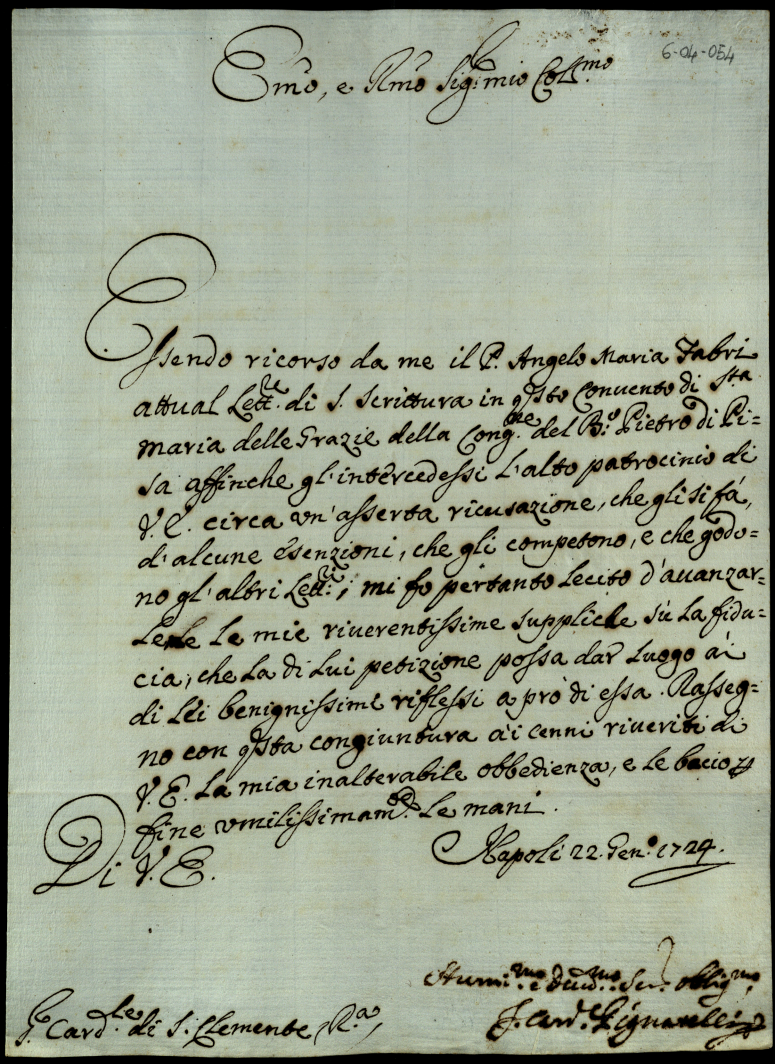 6-04-054
Em̃o, e Rm̃o Sig. mio Coll.mo
Essendo ricorso da me il P. Angelo Maria Fabri
attual Lett.re di S. Scrittura in q̃sto Convento di S.ta
Maria delle Grazie della Cong.ne del B.o Pietro di Pi=
sa affinche gl'intercedessi l'alto patrocinio di
V. E. circa un'asserta ricusazione, che gli si fá,
d'alcune esenzioni, che gli competono, e che godo=
no gl'altri Lett.ri; mi fo pertanto lecito d'avanzar=
le le mie riverentissime suppliche sù la fidu=
cia, che la di lui petizione possa dar luogo ai
di Lei benignissimi riflessi a prò di essa. Rasseg=
no con q̃sta congiuntura ai cenni riveriti di
V. E. la mia inalterabile obbedienza, e le bacio per
fine umilissimam.te le mani.
Di V. E. Napoli 22. Gen.o 1724.
Humi.mo e Div.mo Ser. obblig.mo
F. Card. Pignatelli
S.r Card.le di S. Clemente R.a